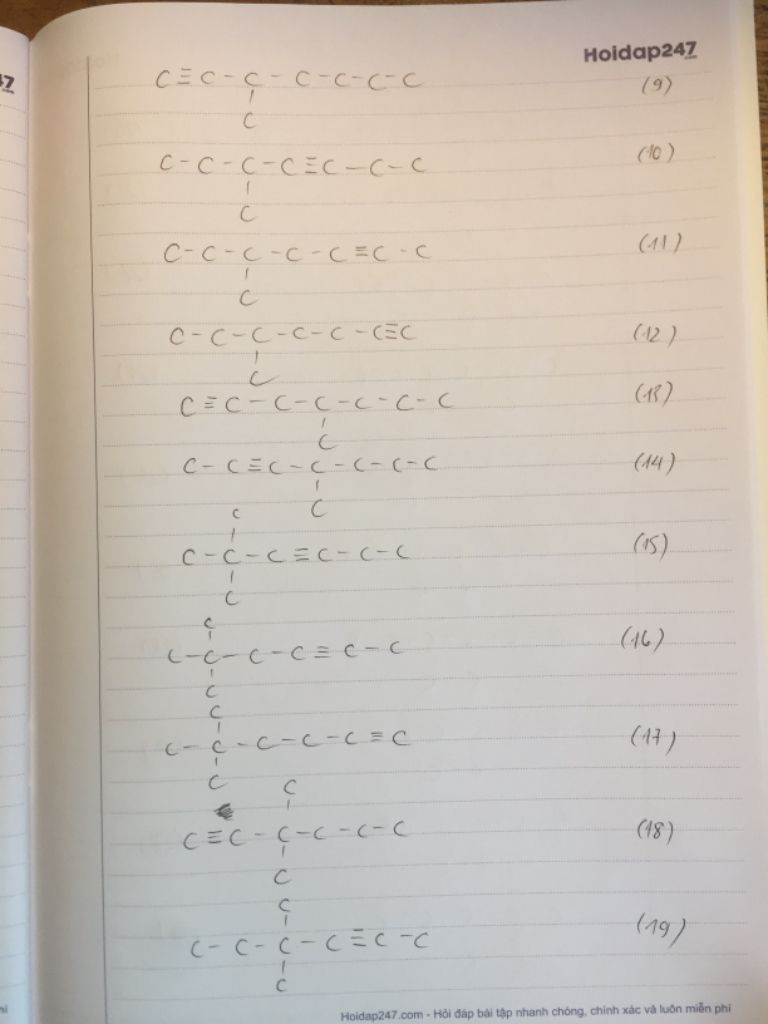 Hoidap247
.com
C≡C-C-C-C-C-C (9)
C
C-C-C-C≡C-C-C (10)
C
C-C-C-C-C≡C-C (11)
C
C-C-C-C-C-C≡C (12)
C
C≡C-C-C-C-C-C (13)
C
C-C≡C-C-C-C-C (14)
C C
C-C-C≡C-C-C (15)
C
C
C-C-C-C≡C-C (16)
C
C
C-C-C-C-C≡C (17)
C C
C≡C-C-C-C-C (18)
C
C
C-C-C-C≡C-C (19)
C
Hoidap247.com - Hỏi đáp bài tập nhanh chóng, chính xác và luôn miễn phí